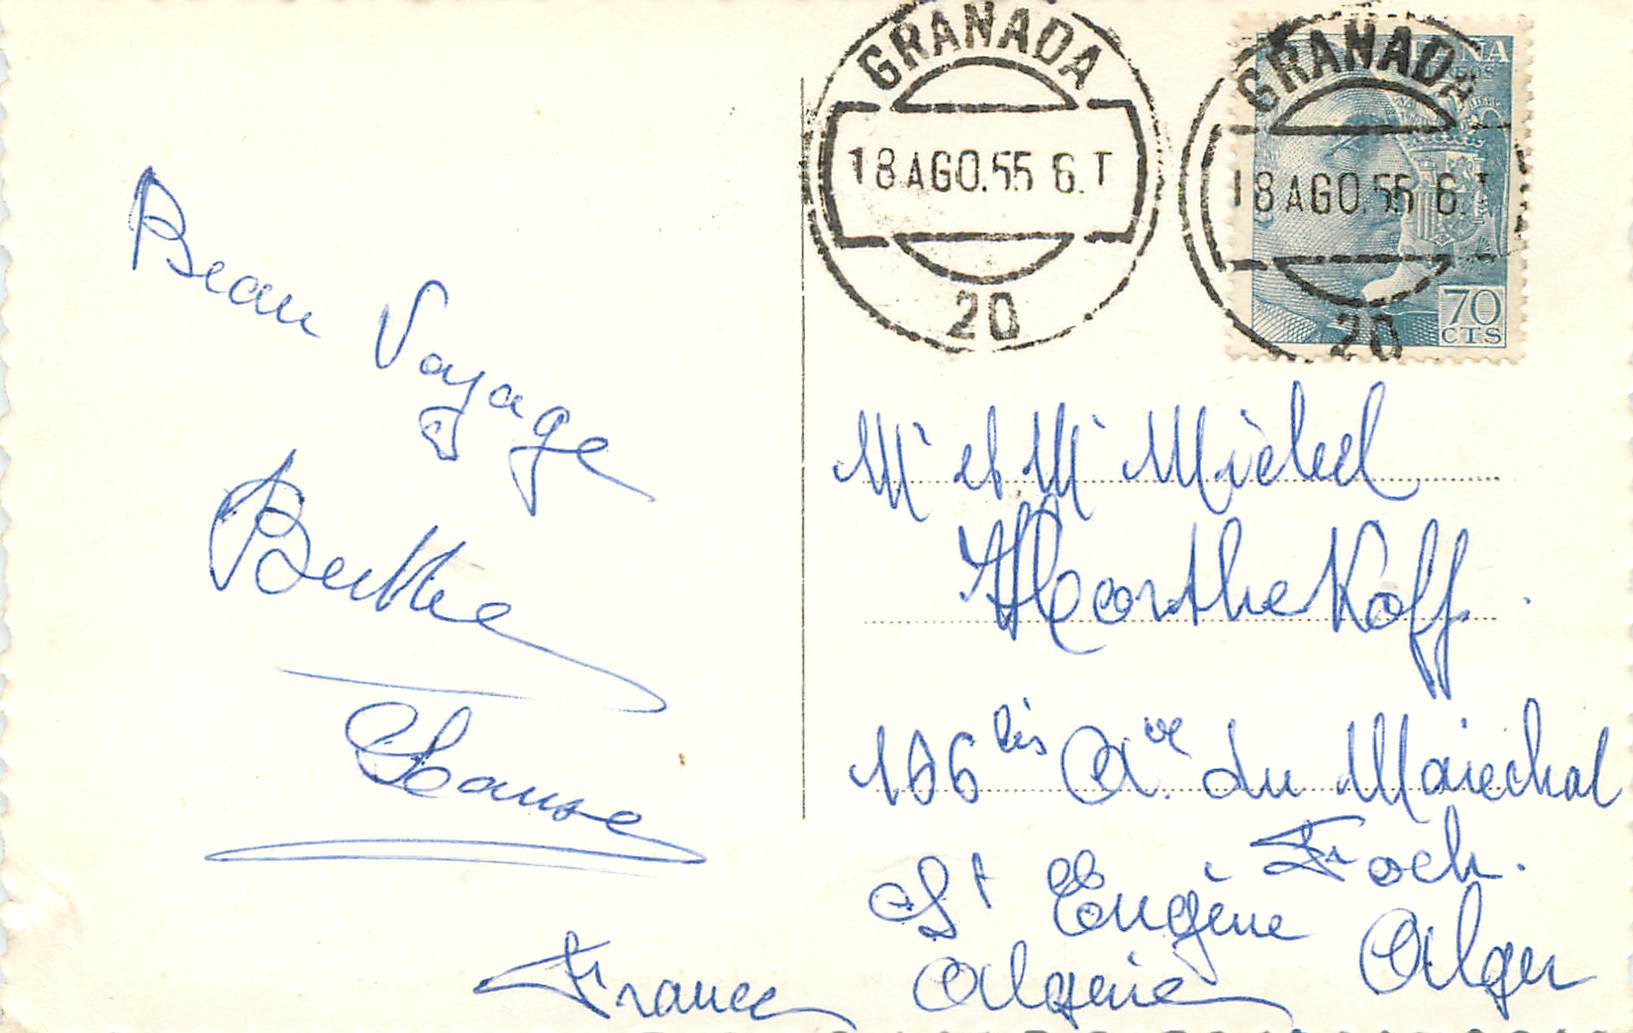 Beau Voyage
Berthe
GRANADA
18 AGO.55 6.T
20
GRANADA
18 AGO.55 6.T
20
70
CTS
Mr et Me Michel
Korthekoff
106 bis Ave. du Marechal
Foch.
St Eugène Alger
France Algerie